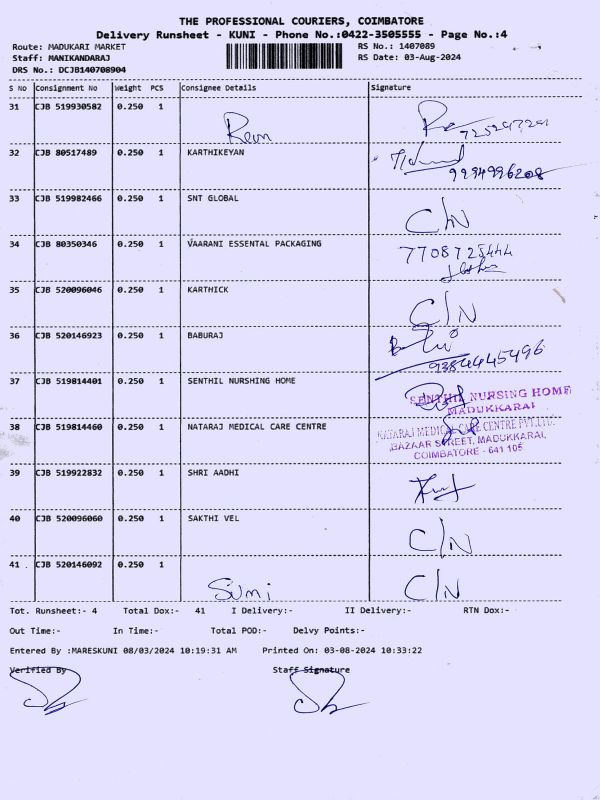 THE PROFESSIONAL COURIERS, COIMBATORE
Delivery Runsheet - KUNI - Phone No.:0422-3505555 - Page No.:4
Route: MADUKARI MARKET RS No.: 1407089
Staff: MANIKANDARAJ RS Date: 03-Aug-2024
DRS No.: DCJB140708904
S No Consignment No Weight PCS Consignee Details Signature
31 CJB 519930582 0.250 1
32 CJB 80517489 0.250 1 KARTHIKEYAN
9994996208
33 CJB 519982466 0.250 1 SNT GLOBAL C/N
34 CJB 80350346 0.250 1 VAARANI ESSENTAL PACKAGING 7708725444
35 CJB 520096046 0.250 1 KARTHICK C/N
36 CJB 520146923 0.250 1 BABURAJ
9384445496
37 CJB 519814401 0.250 1 SENTHIL NURSHING HOME SENTHIL NURSING HOME
MADUKKARAI
38 CJB 519814460 0.250 1 NATARAJ MEDICAL CARE CENTRE NATARAJ MEDICAL CARE CENTRE PVT.LTD.
BAZAAR STREET, MADUKKARAI,
COIMBATORE - 641 105
39 CJB 519922832 0.250 1 SHRI AADHI
40 CJB 520096060 0.250 1 SAKTHI VEL C/N
41 . CJB 520146092 0.250 1 Sumi C/N
Tot. Runsheet:- 4 Total Dox:- 41 I Delivery:- II Delivery:- RTN Dox:-
Out Time:- In Time:- Total POD:- Delvy Points:-
Entered By :MARESKUNI 08/03/2024 10:19:31 AM Printed On: 03-08-2024 10:33:22
Verified By Staff Signature